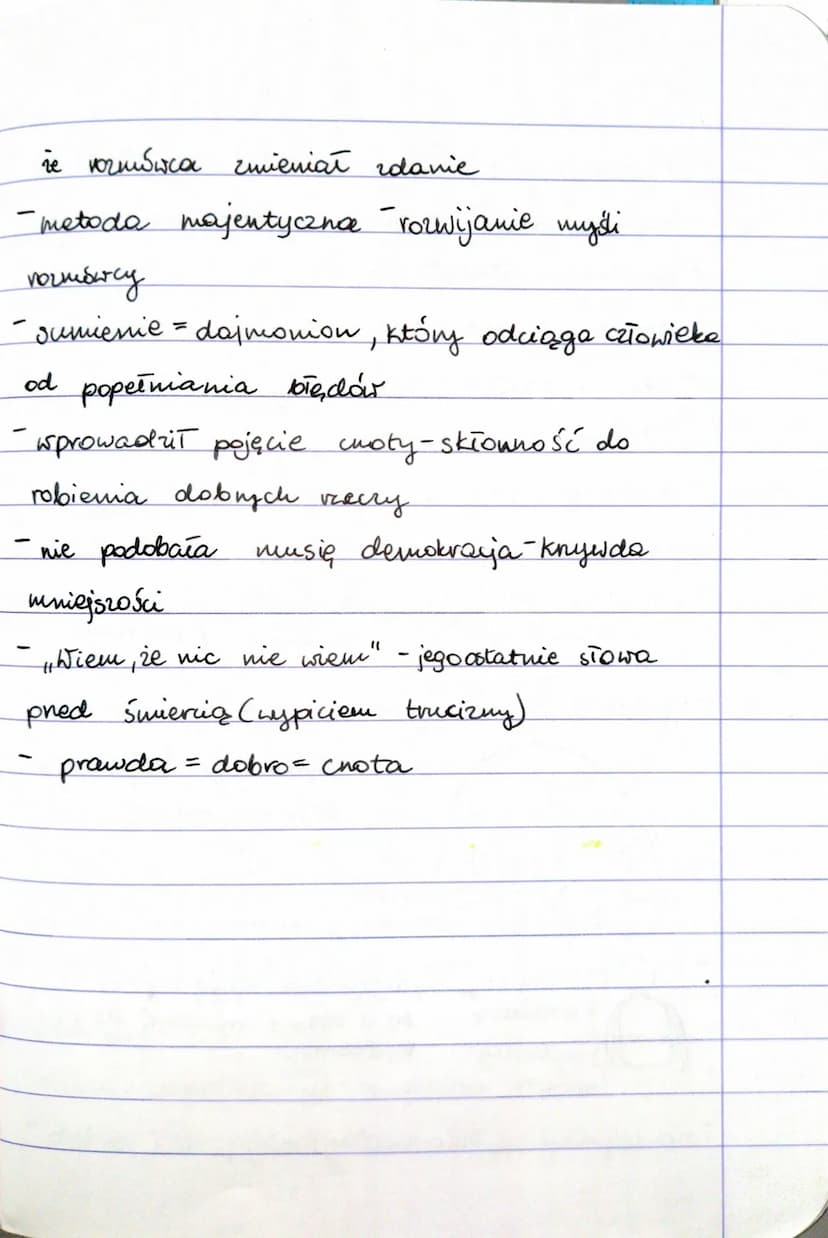 że rozmówca zmieniał zdanie
- metoda majentyczna - rozwijanie myśli
rozmówcy
- sumienie = dajmonion, który odciąga człowieka
od popełniania błędów
- wprowadził pojęcie cnoty - skłonność do
robienia dobrych rzeczy
- nie podobała musię demokracja - krzywda
mniejszości
- „Wiem, że nic nie wiem" - jego ostatnie słowa
przed śmiercią (wypiciem trucizny)
- prawda = dobro = cnota